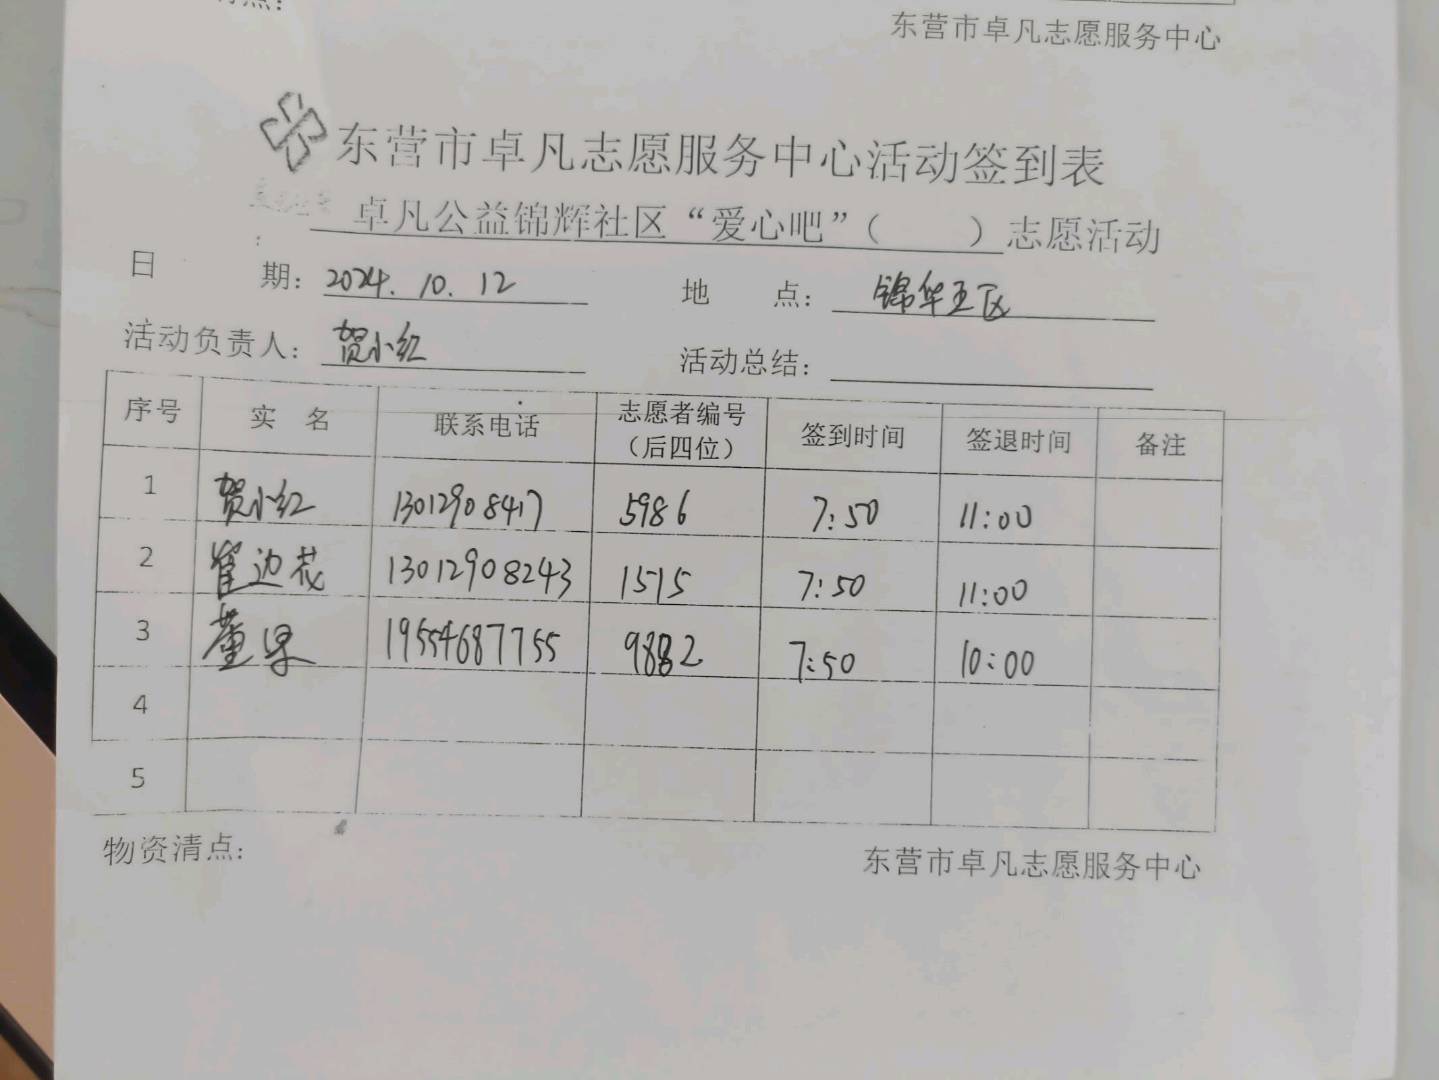 东营市卓凡志愿服务中心
东营市卓凡志愿服务中心活动签到表
卓凡公益锦辉社区“爱心吧”（ ）志愿活动
日 期：2024.10.12 地 点：锦华五区
活动负责人：贺小红 活动总结：
序号 实 名 联系电话 志愿者编号（后四位） 签到时间 签退时间 备注
1 贺小红 13012908417 5986 7:50 11:00
2 崔边花 13012908243 1515 7:50 11:00
3 董果 19554687755 9882 7:50 10:00
4
5
物资清点：
东营市卓凡志愿服务中心